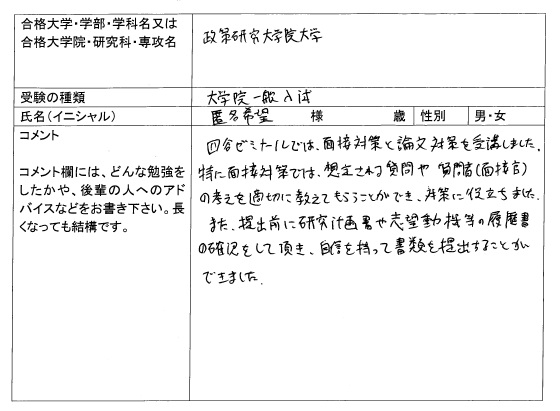 合格大学・学部・学科名又は
合格大学院・研究科・専攻名
政策研究大学院大学
受験の種類
大学院一般入試
氏名(イニシャル)
匿名希望 様 歳 性別 男・女
コメント
コメント欄には、どんな勉強を
したかや、後輩の人へのアド
バイスなどをお書き下さい。長
くなっても結構です。
四谷ゼミナールでは、面接対策と論文対策を受講しました。
特に面接対策では、想定される質問や質問者(面接官)
の考えを適切に教えてもらうことができ、対策に役立ちました。
また、提出前に研究計画書や志望動機等の履歴書
の確認をして頂き、自信を持って書類を提出することが
できました。